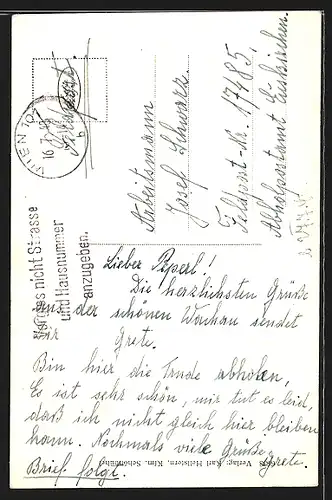 WIEN 101
16.7.
Feldpost
Arbeitsmann
Josef Schwarz
Feldpost-Nr. 17485.
Abholpostamt Euskirchen.
Vergiss nicht Strasse
und Hausnummer
anzugeben.
Lieber Pepperl!
Die herzlichsten Grüße
aus der schönen Wachau sendet
Dir
Grete.
Bin hier die Trude abholen,
Es ist sehr schön, mir tut es leid,
daß ich nicht gleich hier bleiben
kann. Nochmals viele Grüße
Grete.
Brief folgt.
Verlag: Karl Hellstern, Klm.